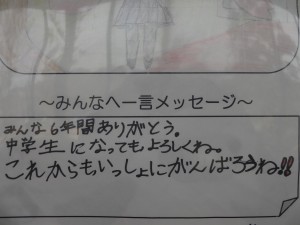 ～みんなへ一言メッセージ～
みんな6年間ありがとう。
中学生になってもよろしくね。
これからもいっしょにがんばろうね!!